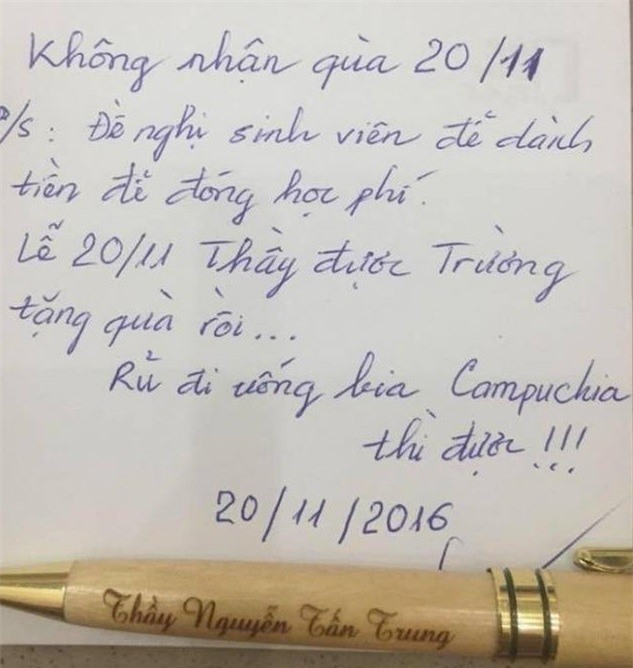 Không nhận quà 20/11
P/s: Đề nghị sinh viên để dành
tiền để đóng học phí.
Lễ 20/11 Thầy được Trường
tặng quà rồi...
Rủ đi uống bia Campuchia
thì được !!!
20/11/2016
Thầy Nguyễn Tấn Trung